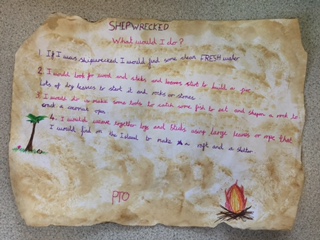 SHIPWRECKED
What would I do?
1 If I was shipwrecked I would find some clean FRESH water
2 I would look for wood and sticks and leaves start to build a fire
lots of dry leaves to start it and rocks or stones
3 I would do is make some tools to catch some fish to eat and sharpen a rock to
and a coconut open
4. I would weave together logs and sticks using large leaves or rope that
I would find on the Island to make a raft and a shelter
PTO